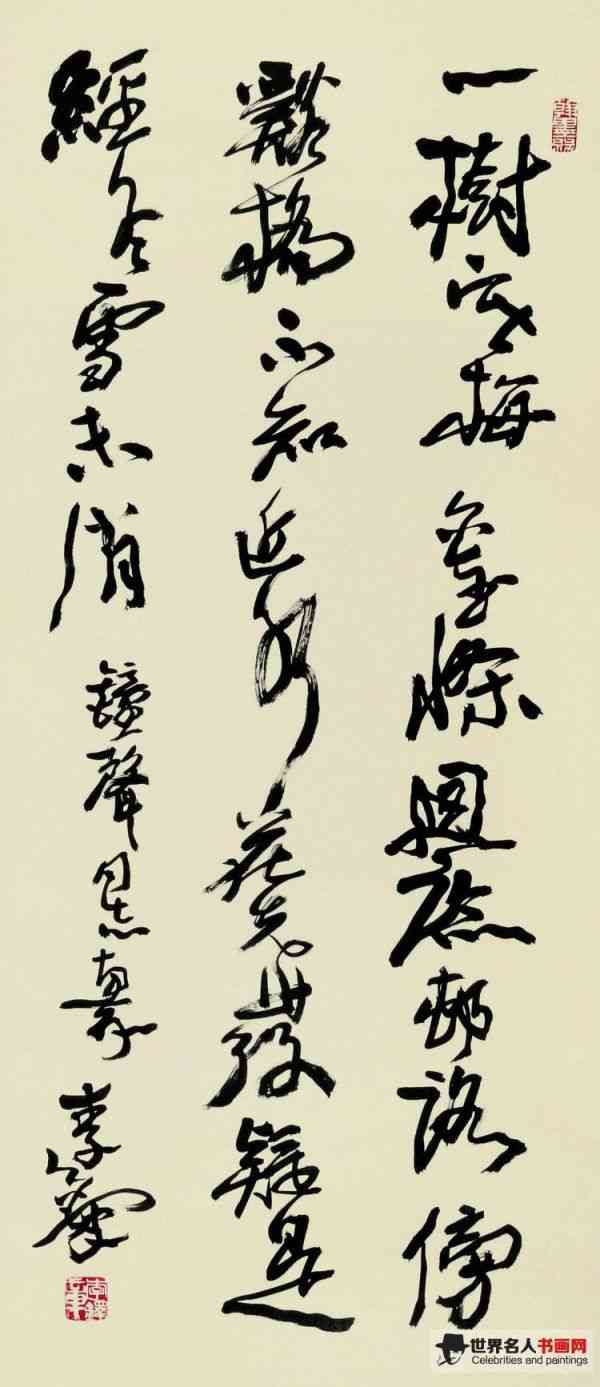 一樹寒梅白玉條迥臨邨路傍
谿橋不知近水花先發疑是
經冬雪未消 鐘聲同志 李鐸
世界名人书画网
Celebrities and paintings